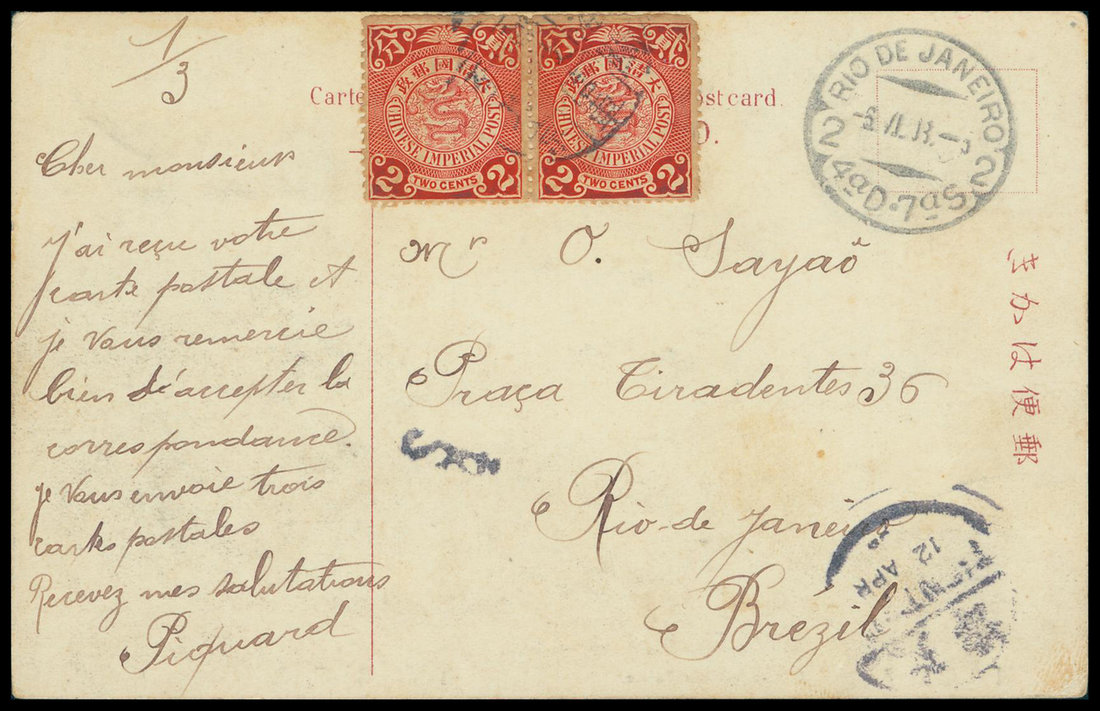 1/3
Carte
ostcard.
分 貳
政郵國清大
CHINESE IMPERIAL POST
2 TWO CENTS 2
分 貳
政郵國清大
CHINESE IMPERIAL POST
2 TWO CENTS 2
RIO DE JANEIRO
2 2
4ªD.7ªS
Cher monsieur
J'ai reçue votre
carte postale et
je vous remercie
bien d'accepter la
correspondance.
je vous envoie trois
cartes postales
Recevez mes salutations
Piquard
Mr O. Sayaõ
Praça Tiradentes 36
Rio-de Janeiro
Brézil
きかは便郵
12 APR